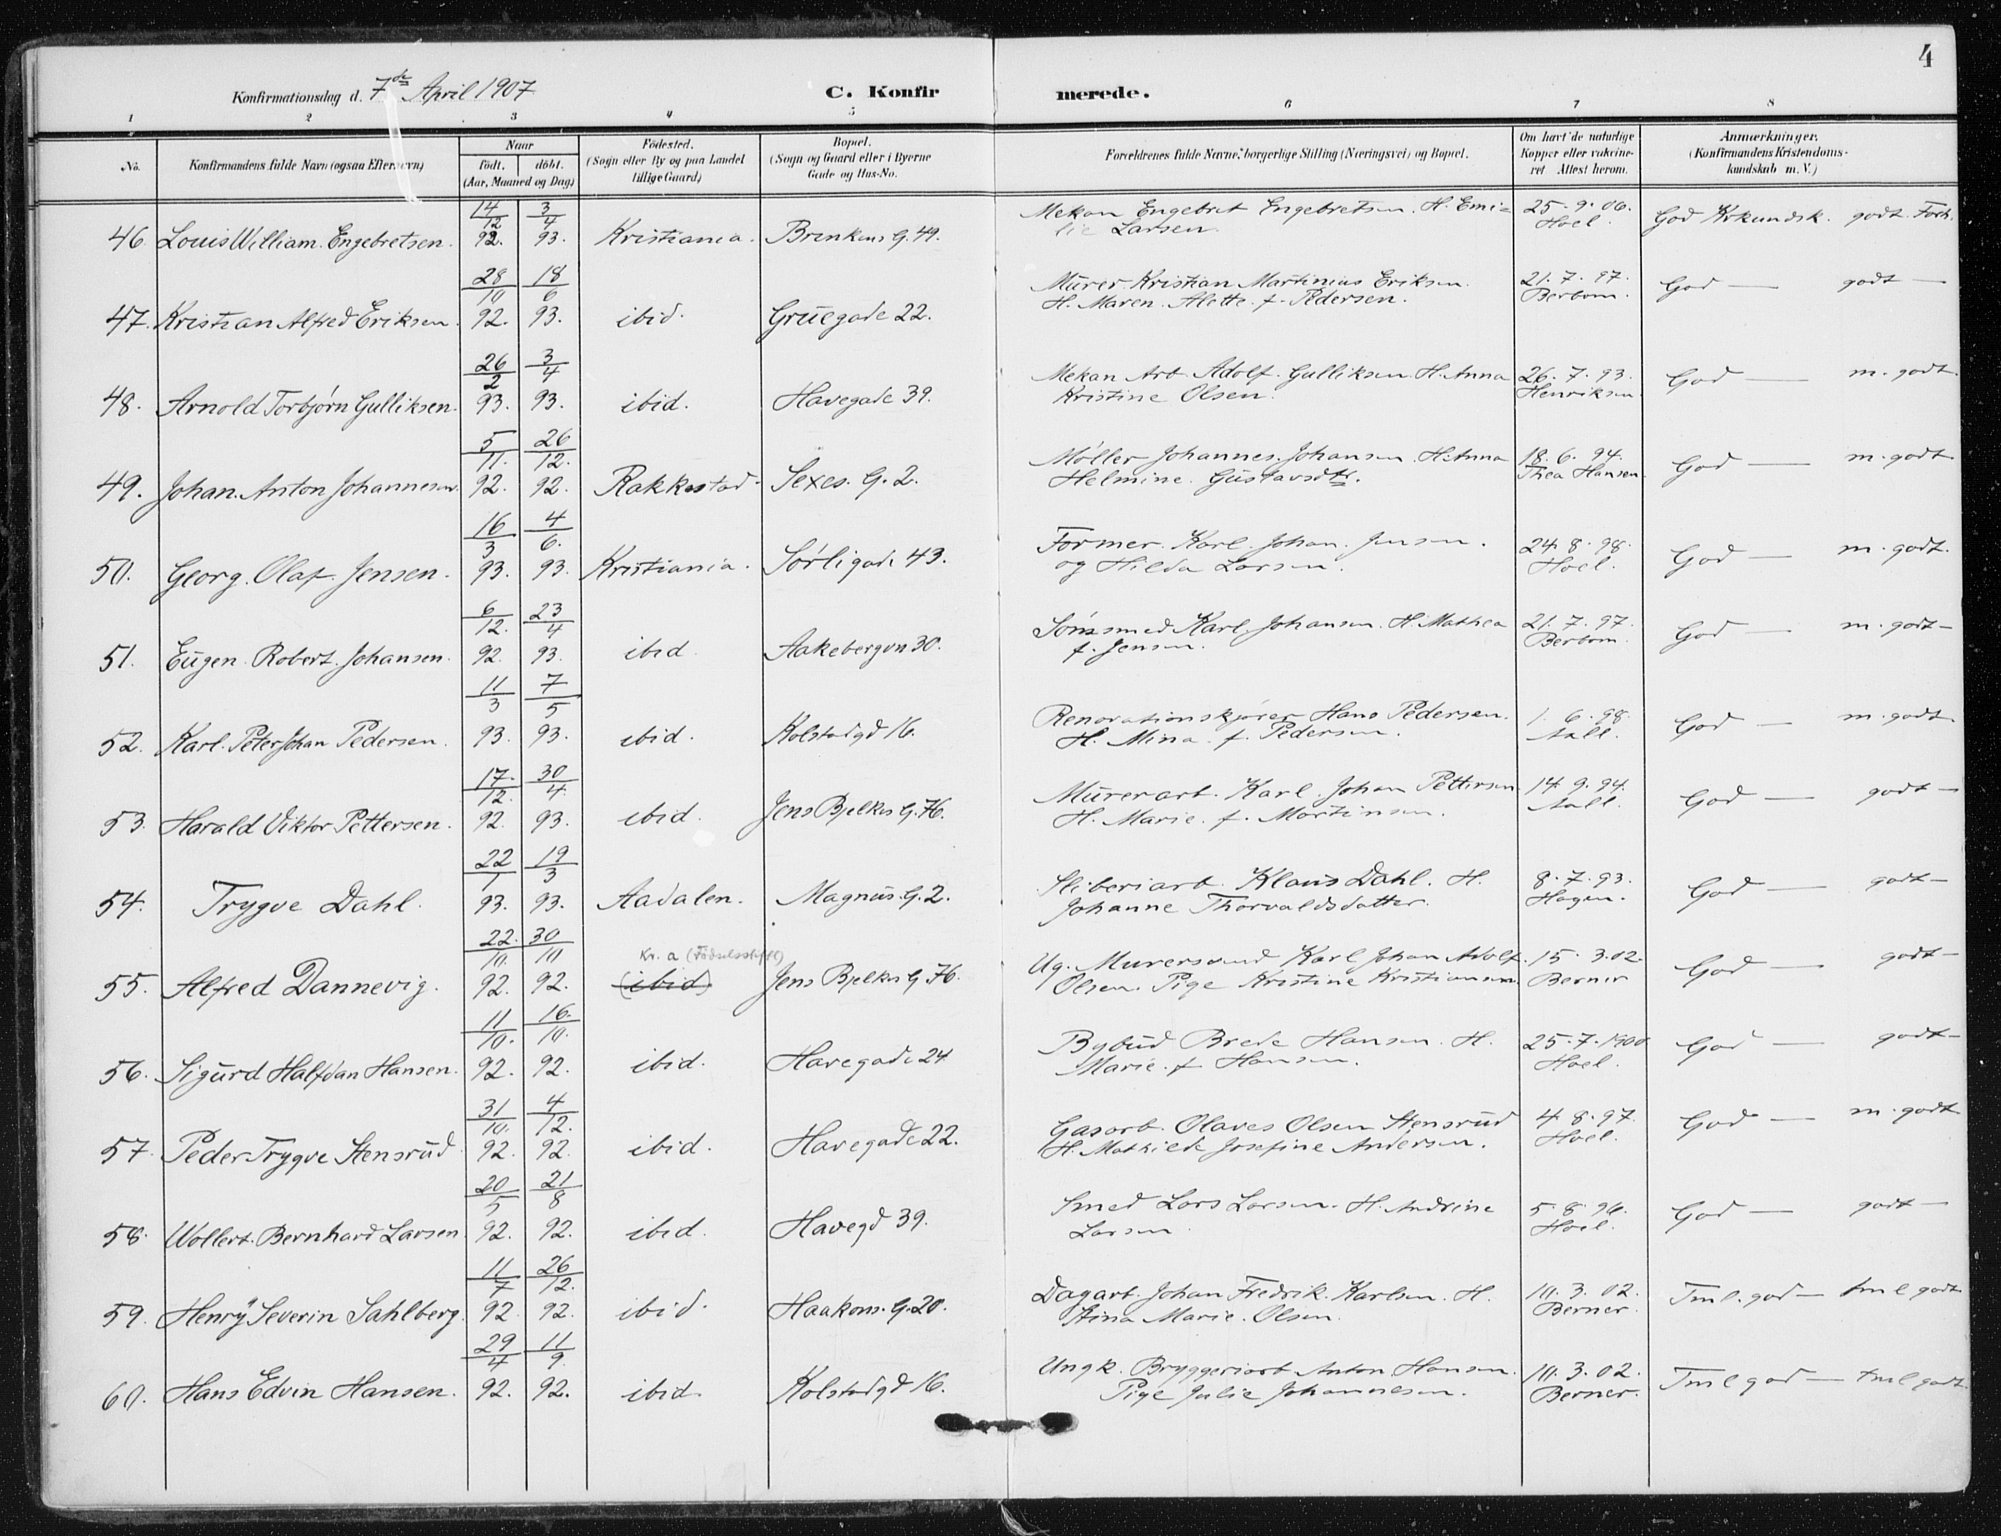 4
Konfirmationsdag d. 7de April 1907
C. Konfirmerede.
1 2 3 4 5 6 7 8
No. Konfirmandens fulde Navn (ogsaa Efternavn) Naar født. døbt. (Aar, Maaned og Dag) Fødested. (Sogn eller By og paa Landet tillige Gaard) Bopæl. (Sogn og Gaard eller i Byerne Gade og Hus-No. Forældrenes fulde Navne, borgerlige Stilling (Næringsvei) og Bopæl. Om havt de naturlige Kopper eller vakcineret Attest herom. Anmærkninger. (Konfirmandens Kristendomskundskab m. V.)
46. Louis William Engebretsen. 14/12 92. 3/4 93. Kristiania. Brinkens G. 49. Mekan Engebret Engebretsen. H. Emilie Larsen. 25.9.06. Hoel. God Krkundsk. godt Forh.
47. Kristian Alfred Eriksen. 28/10 92. 18/6 93. ibid. Gruegade 22. Murer Kristian Martinius Eriksen. H. Maren Alette f. Pedersen. 21.7.97. Berbom. God — godt —
48. Arnold Torbjørn Gulliksen. 26/2 93. 3/4 93. ibid. Havegade 39. Mekan Arb Adolf Gulliksen H. Anna Kristine Olsen. 26.7.93. Henriksen. God — m. godt.
49. Johan Anton Johannesen. 5/11. 92. 26/12. 92. Rakkestad. Sexes. G. 2. Møller Johannes Johansen H. Anna Helmine Gustavsdtr. 18.6.94. Thea Hansen. God — m. godt
50. Georg Olaf Jensen. 16/3 93. 4/6. 93. Kristiania. Sørligade 43. Former Karl Johan Jensen. og Hilda Larsen. 24.8.98. Hoel. God — m. godt.
51. Eugen Robert Johansen. 6/12. 92. 23/4 93. ibid. Aakebergvn 30. Karl Johansen. H. Mathea f. Jensen. 21.7.97. Berbom. God — m. godt —
52. Karl Peter Johan Pedersen. 11/3 93. 7/5 93. ibid. Kolstadgd 16. Renovationskjører Hans Pedersen. H. Mina f. Pedersen. 1.6.98. Aall. God — m. godt.
53. Harald Viktor Pettersen. 17/12. 92. 30/4. 93. ibid. Jens Bjelkes G. 76. Murerarb. Karl Johan Pettersen H. Marie f. Martinsen. 14.9.94. Aall. God — godt —
54. Trygve Dahl. 22/1 93. 19/3 93. Aadalen. Magnus G. 2. Sliberiarb. Klaus Dahl. H. Johanne Thorvaldsdatter. 8.7.93. Hagen. God — godt —
55. Alfred Dannevig. 22/10. 92. 30/10 92. Kr.a (Fødselsstift) (ibid) Jens Bjelkes G 76. Ug. Murersvend Karl Johan Adolf Olsen. Pige Kristine Kristiansen. 15.3.02. Berner God — godt —
56. Sigurd Halfdan Hansen. 11/10. 92. 16/10. 92. ibid. Havegade 24 Bybud Brede Hansen. H. Marie f. Hansen. 25.7.1900 Hoel. God — godt —
57. Peder Trygve Stensrud 31/10. 92. 4/12. 92. ibid. Havegade 22. Gasarb. Olaves Olsen Stensrud H. Mathilde Josefine Andersen. 4.8.97. Hoel. God — m. godt
58. Wollert Bernhard Larsen 20/5 92. 21/8 92. ibid. Havegd 39. Smed Lars Larsen. H. Andrine Larsen 5.8.96. Hoel. God — godt —
59. Henry Severin Sahlberg. 11/7 92. 26/12. 92. ibid. Haakons G. 20. Dagarb. Johan Fredrik Karlsen. H. Stina Marie Olsen. 10.3.02. Berner. Tml. god — tml godt
60. Hans Edvin Hansen. 29/4 92. 11/9. 92. ibid. Kolstadgd 16. Ungk. Bryggeriarb Anton Hansen. Pige Julie Johannesen. 10.3.02. Berner. Tml god — tml godt.